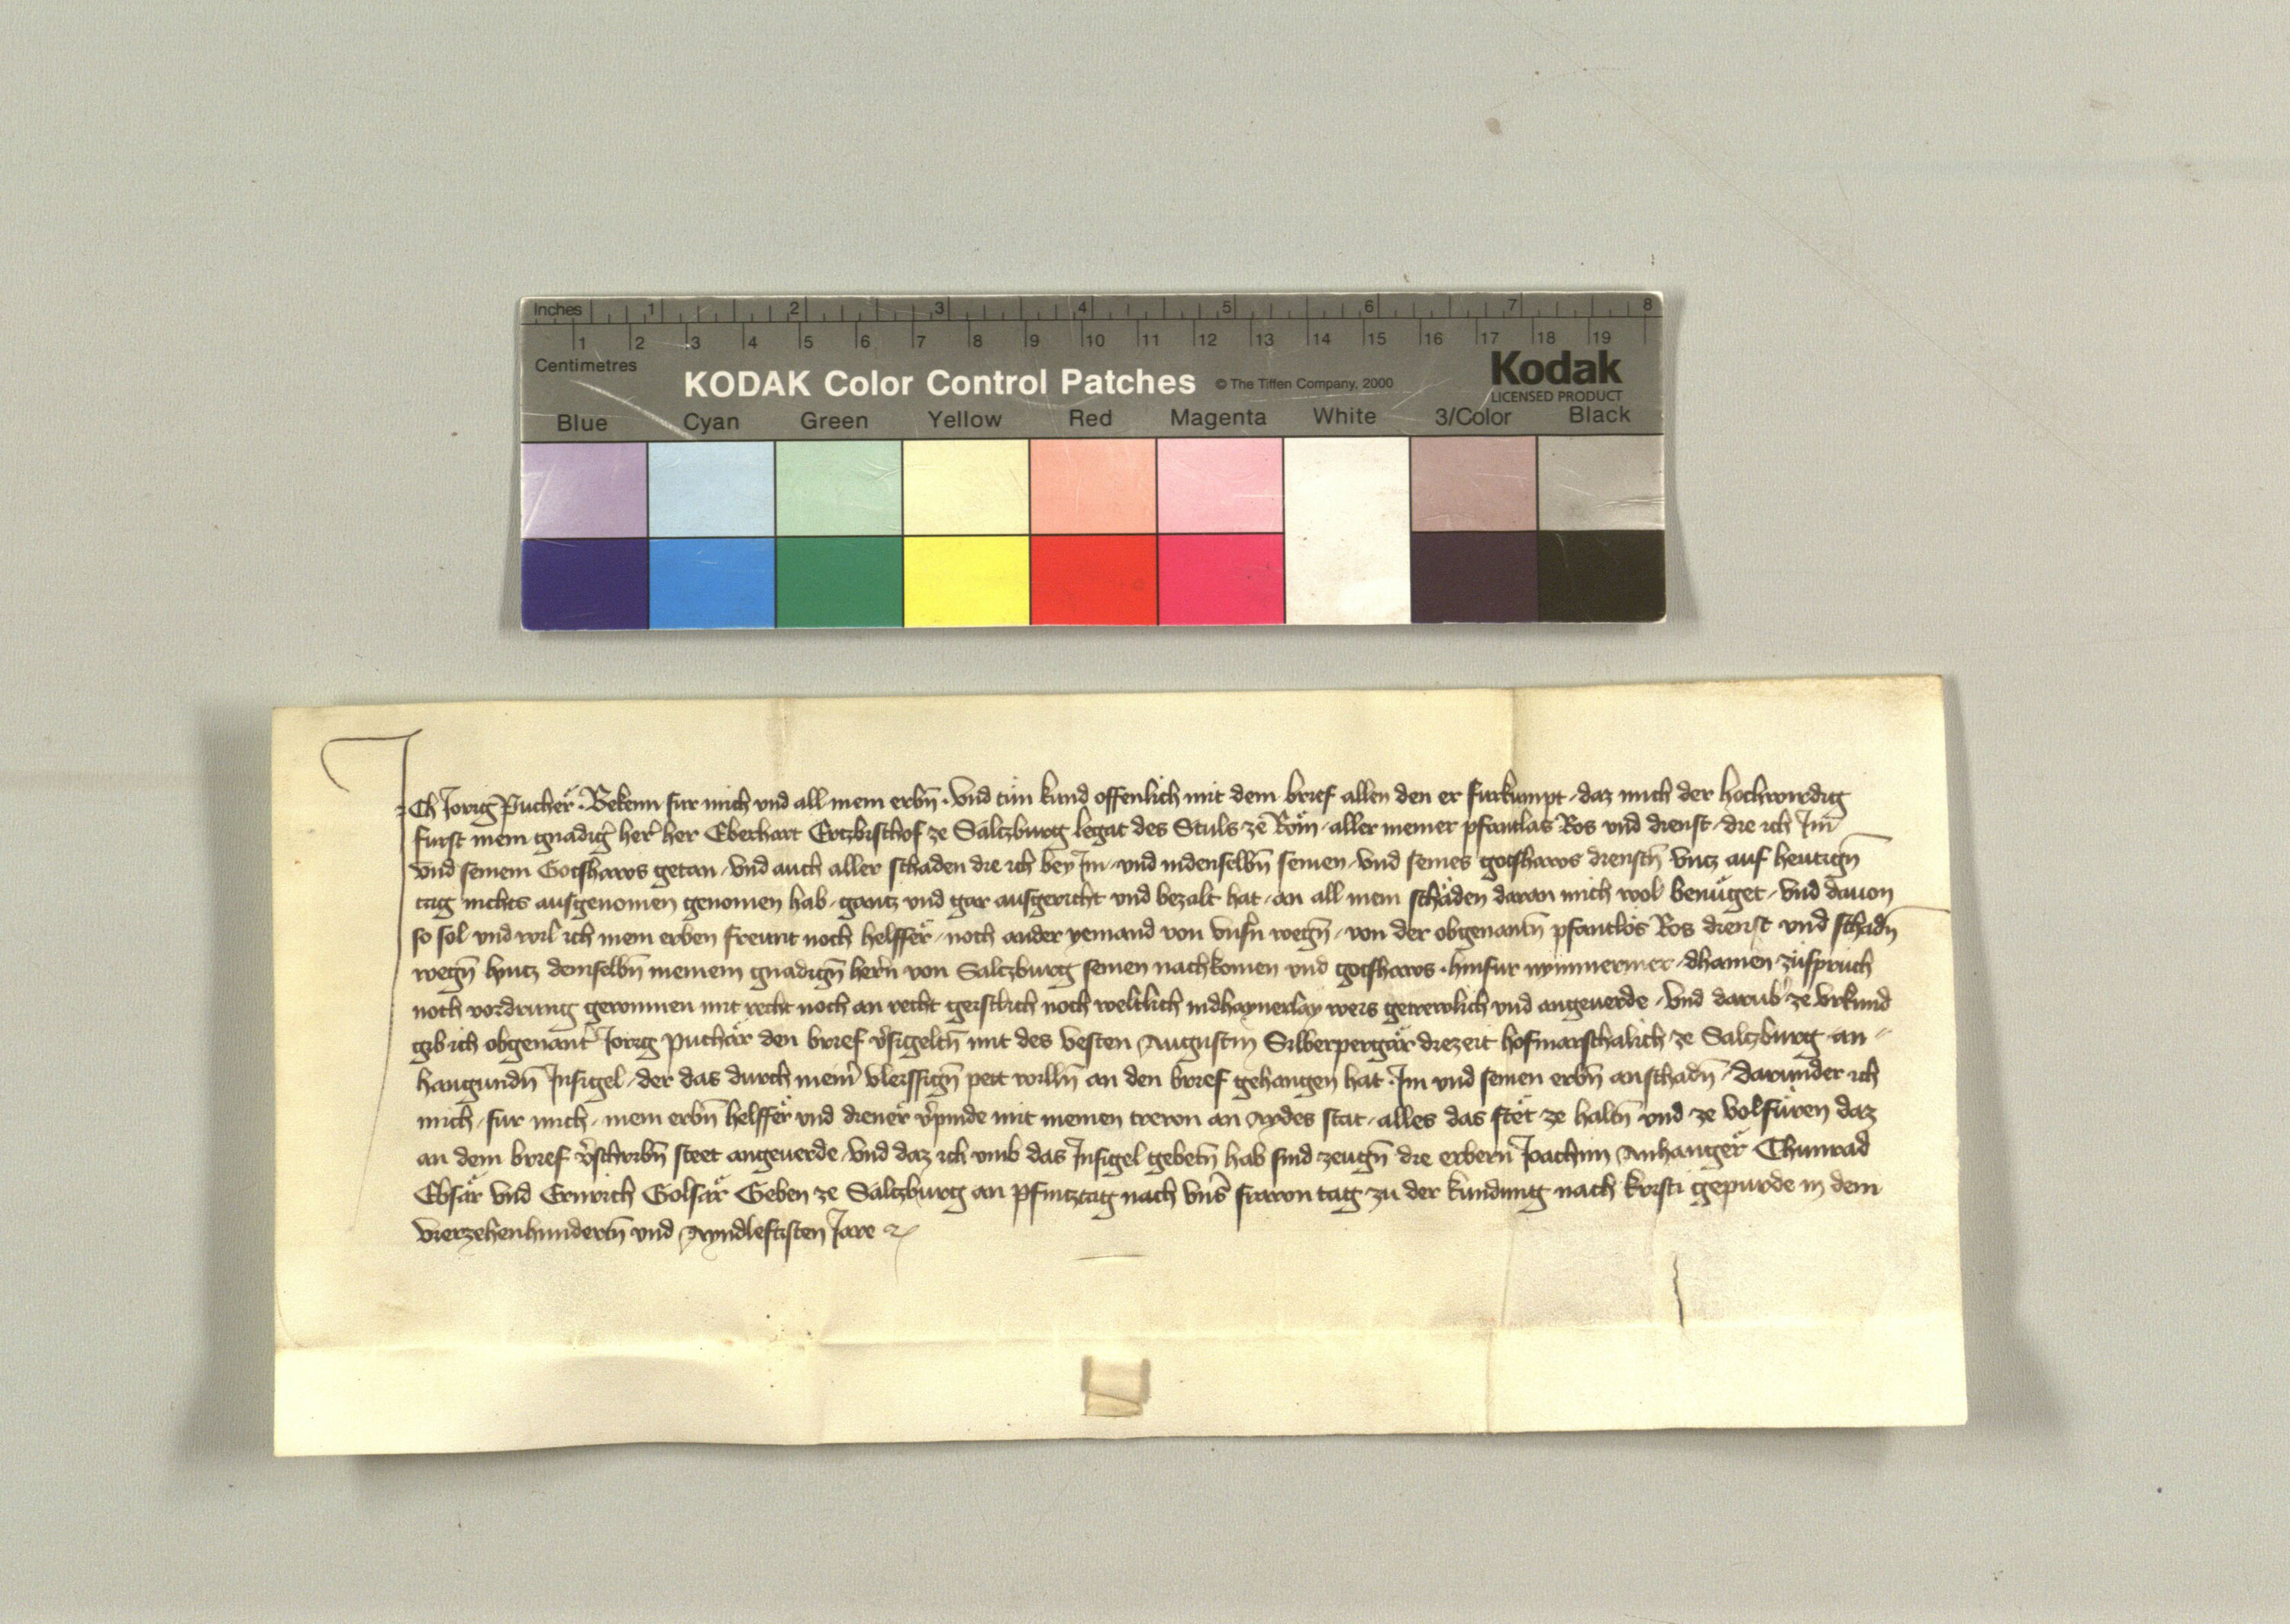 Inches 1 2 3 4 5 6 7 8
1 2 3 4 5 6 7 8 9 10 11 12 13 14 15 16 17 18 19
Centimetres
KODAK Color Control Patches © The Tiffen Company, 2000 Kodak
LICENSED PRODUCT
Blue Cyan Green Yellow Red Magenta White 3/Color Black
Ich Jorig Pucher · Bekenn fur mich vnd all mein erbn̄ · vnd tůn kund offenlich mit dem brief allen den er furkumpt · daz mich der hochwirdig
furst mein gnadig̉ her̉ her Eberhart Ertzbischof ze Saltzburg legat des Stuls ze Rom · aller meiner pfantlas Ros vnd dienst · die ich Im̄
vnd seinem Gotshaws getan · vnd auch aller schaden die ich bey Im · vnd indenselbn̄ seinen · vnd seines gotshaws dienstn̄ vntz auf heutign̄
tag nichts ausgenomen genomen hab · gantz vnd gar ausgericht vnd bezalt hat · an all mein schäden daran mich wol benüget · vnd dauon
so sol vnd wil ich mein erben freunt noch helffer · noch ander yemand von vnsn̉ wegn̄ · von der obgenantn̄ pfantlos Ros dienst vnd schadn̄
wegn̄ hyntz demselbn̄ meinem gnadign̄ hern̄ von Saltzburg seinen nachkomen vnd gotshaws · hinfur nymmermer · dhainen zůspruch
noch vordrung gewinnen mit recht noch an recht geistlich noch weltlich indhaynerlay weis getrewlich vnd angeuerde · vnd darub̉ ze vrkund
gib ich obgenant̉ Jorig Puchär den brief v̉sigeltn̄ mit des vesten Augustin Silberpergär diezeit hofmarschalich ze Saltzburg an
hangundn̄ Insigel · der das durch mein̉ vleissign̄ pett willn̄ an den brief gehangen hat · Im vnd seinen erbn̄ anschadn̄ · darunder ich
mich · fur mich · mein erbn̄ helffer vnd diener v̉pinde mit meinen trewn an Aydes stat · alles das stet ze haltn̄ vnd ze volfüren daz
an dem brief v̉schribn̄ steet angeuerde · vnd daz ich vmb das Insigel gebetn̄ hab sind zeugn̄ die erbern Joachim Anhanger Chunrad
Ebsär vnd Ernrich Golsär Geben ze Saltzburg an Pfintztag nach vns̉ frawn tag zu der kundung nach kristi gepurde in dem
vierzehenhundertn̄ vnd Ayndleftisten Jare